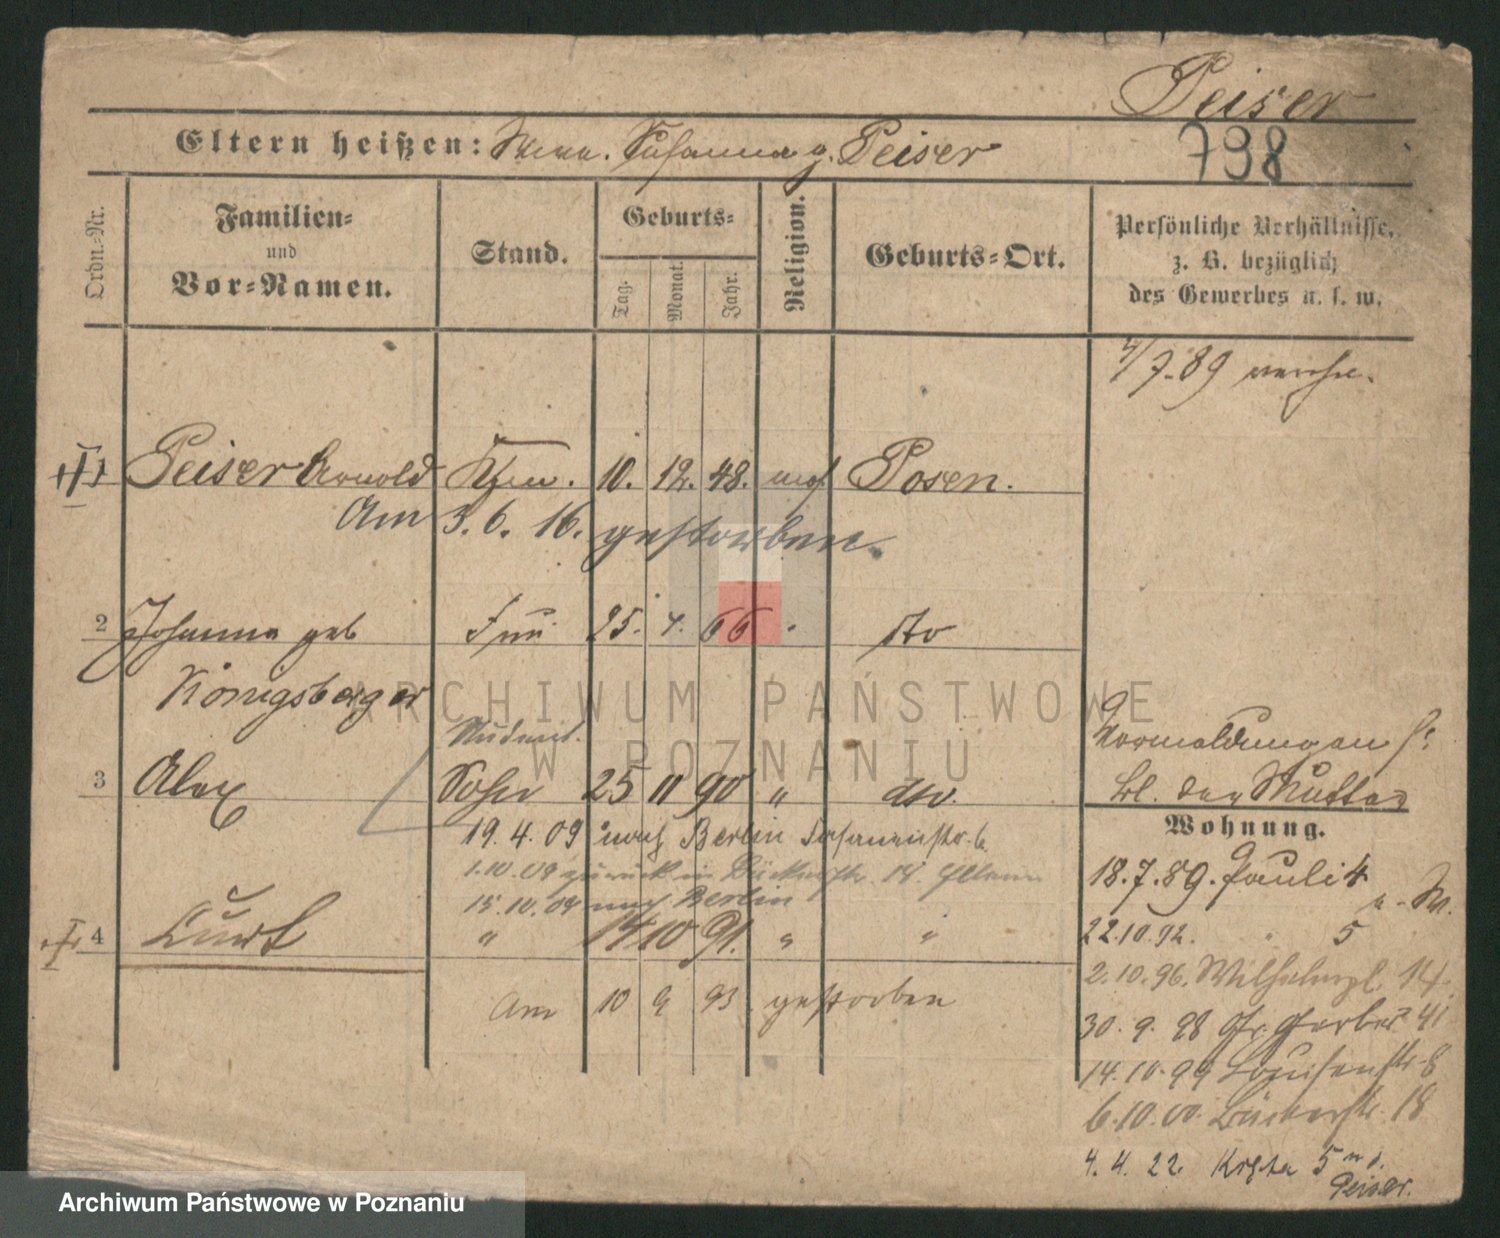 Peiser
798
Eltern heißen: Susanna g. Peiser
Ordn.-Nr.
Familien-
und
Vor-Namen.
Stand.
Geburts-
Tag.
Monat.
Jahr.
Religion.
Geburts-Ort.
Persönliche Verhältnisse,
z. B. bezüglich
des Gewerbes u. s. w.
4/7.89
1 Peiser Arnold Kfm. 10. 12. 48. mos Posen.
Am 3. 6. 16. gestorben.
2 Johanna geb Frau 25. 4. 66 dto
Königsberger
Student.
3 Alex Sohn 25 11 90 " dto.
19. 4. 09 nach Berlin
1.10.09 zurück in Bäckerstr. 18. Eltern
15.10.09 nach Berlin
4 Curt " 14 10 91. " "
Am 10 9 93 gestorben
Vormeldungen s.
Bl. der Mutter
Wohnung.
18.7.89. Pauli 4
22.10.92. " 5
2.10.96. Wilhelmpl. 14.
30. 9. 98 Gr. Gerber 41
14.10.99 Louisenstr. 8
6.10.00. Bäckerstr. 18
4. 4. 22. Karte 5
Peiser.
ARCHIWUM PAŃSTWOWE
W POZNANIU
Archiwum Państwowe w Poznaniu